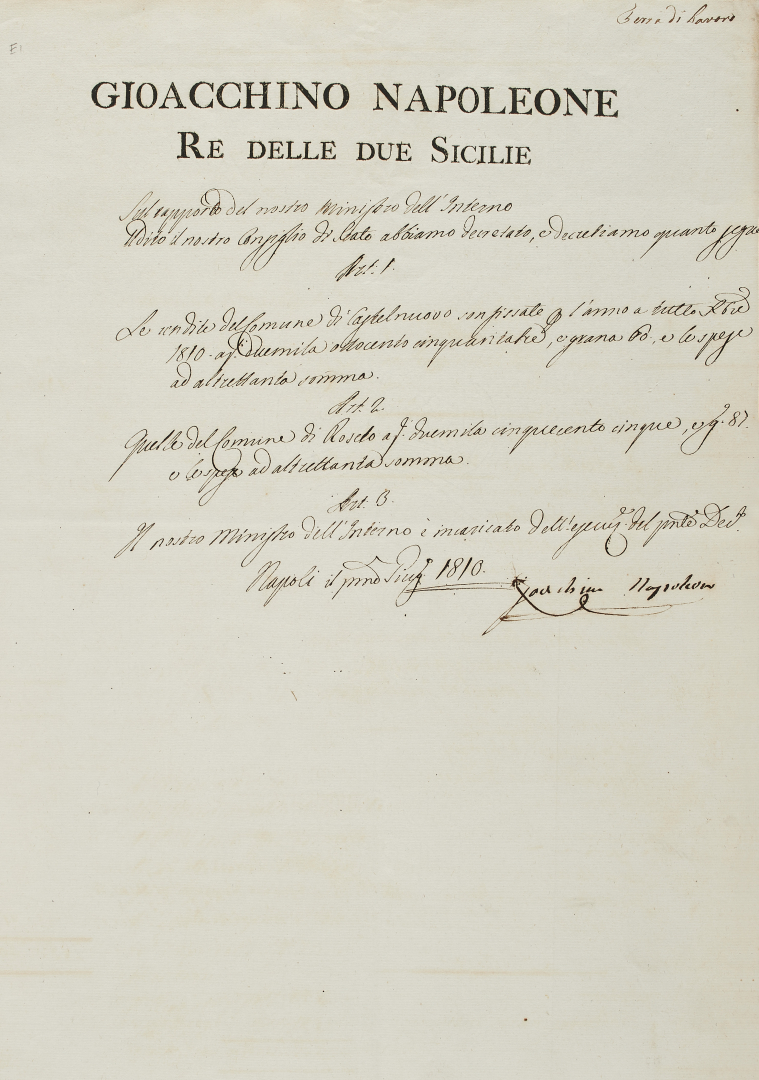 Terra di Lavoro
E1
GIOACCHINO NAPOLEONE
RE DELLE DUE SICILIE
Sul rapporto del nostro Ministro dell'Interno
Udito il nostro Consiglio di Stato abbiamo decretato, e decretiamo quanto segue
Art. 1.
Le rendite del Comune di Castelnuovo son fissate p l'anno a tutto Xbre
1810. a duemila ottocento cinquantatre, e grana 60, e le spese
ad altrettanta somma.
Art. 2.
Quelle del Comune di Roseto a duemila cinquecento cinque, e g. 87.
e le spese ad altrettanta somma.
Art. 3.
Il nostro Ministro dell'Interno è incaricato dell'esecuz. del pnte Dec.
Napoli il pmo Giug 1810.
Joachim Napoleon